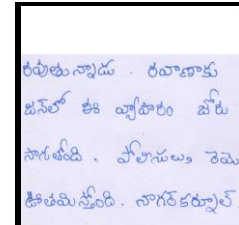 రవుతున్నాడు. రవాణాకు
జన్‌లో ఈ వ్యాపారం జోరు
సాగుతోంది. పోలీసులు, రెమె
ఊతమిస్తోంది. నాగర్‌కర్నూల్,